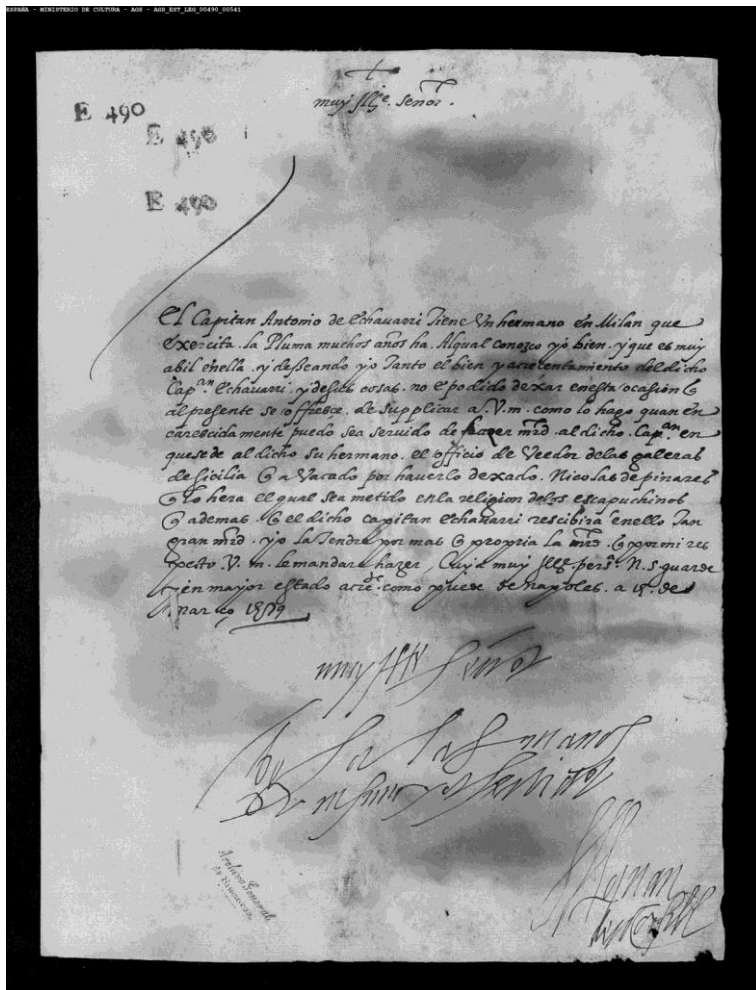 ESPAÑA - MINISTERIO DE CULTURA - AGS - AGS_EST_LEG_00490_00541
E 490
E 490
E 490
muy Ille. señor.
El Capitan Antonio de Echauarri Tiene Vn hermano en Milan que
exercita la Pluma muchos años ha. Alqual conozco yo bien. y que es muy
abil enella. y desseando yo Tanto el bien y acrecentamiento del dicho
Cap.an Echauarri. y desus cosas. no e podido dexar enesta ocasion q
al presente se offresce. de supplicar a. V.m. como lo hago quan en
carescidamente puedo sea seruido de hazer mrd. al dicho. Cap.an en
que se de al dicho su hermano. el officio de Veedor delas galeras
de sicilia q a Vacado por hauerlo dexado. Nicolas de pinares
q lo hera el qual sea metido enla religion delos escapuchinos
q ademas q el dicho capitan echauarri rescibira enello Tan
gran mrd. yo la Tendre por mas q propria la mrd. q por mi res
pecto. V. m. le mandare hazer, Cuya muy Ille. pers.a N. S. guarde
y en mayor estado acre. como puede de napoles. a 15. de
Março 1579
muy Ille Señor
besa las manos
De v m su muy çierto seruidor
Archivo General
de Simancas